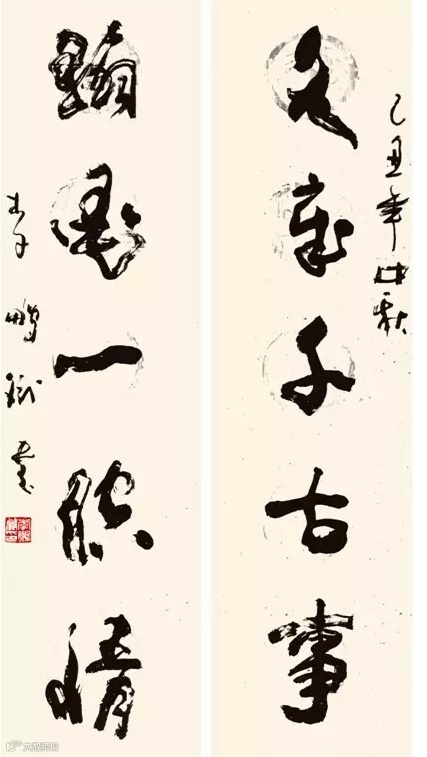 丑年中秋
文章千古事
翰墨一腔情
李鹏书